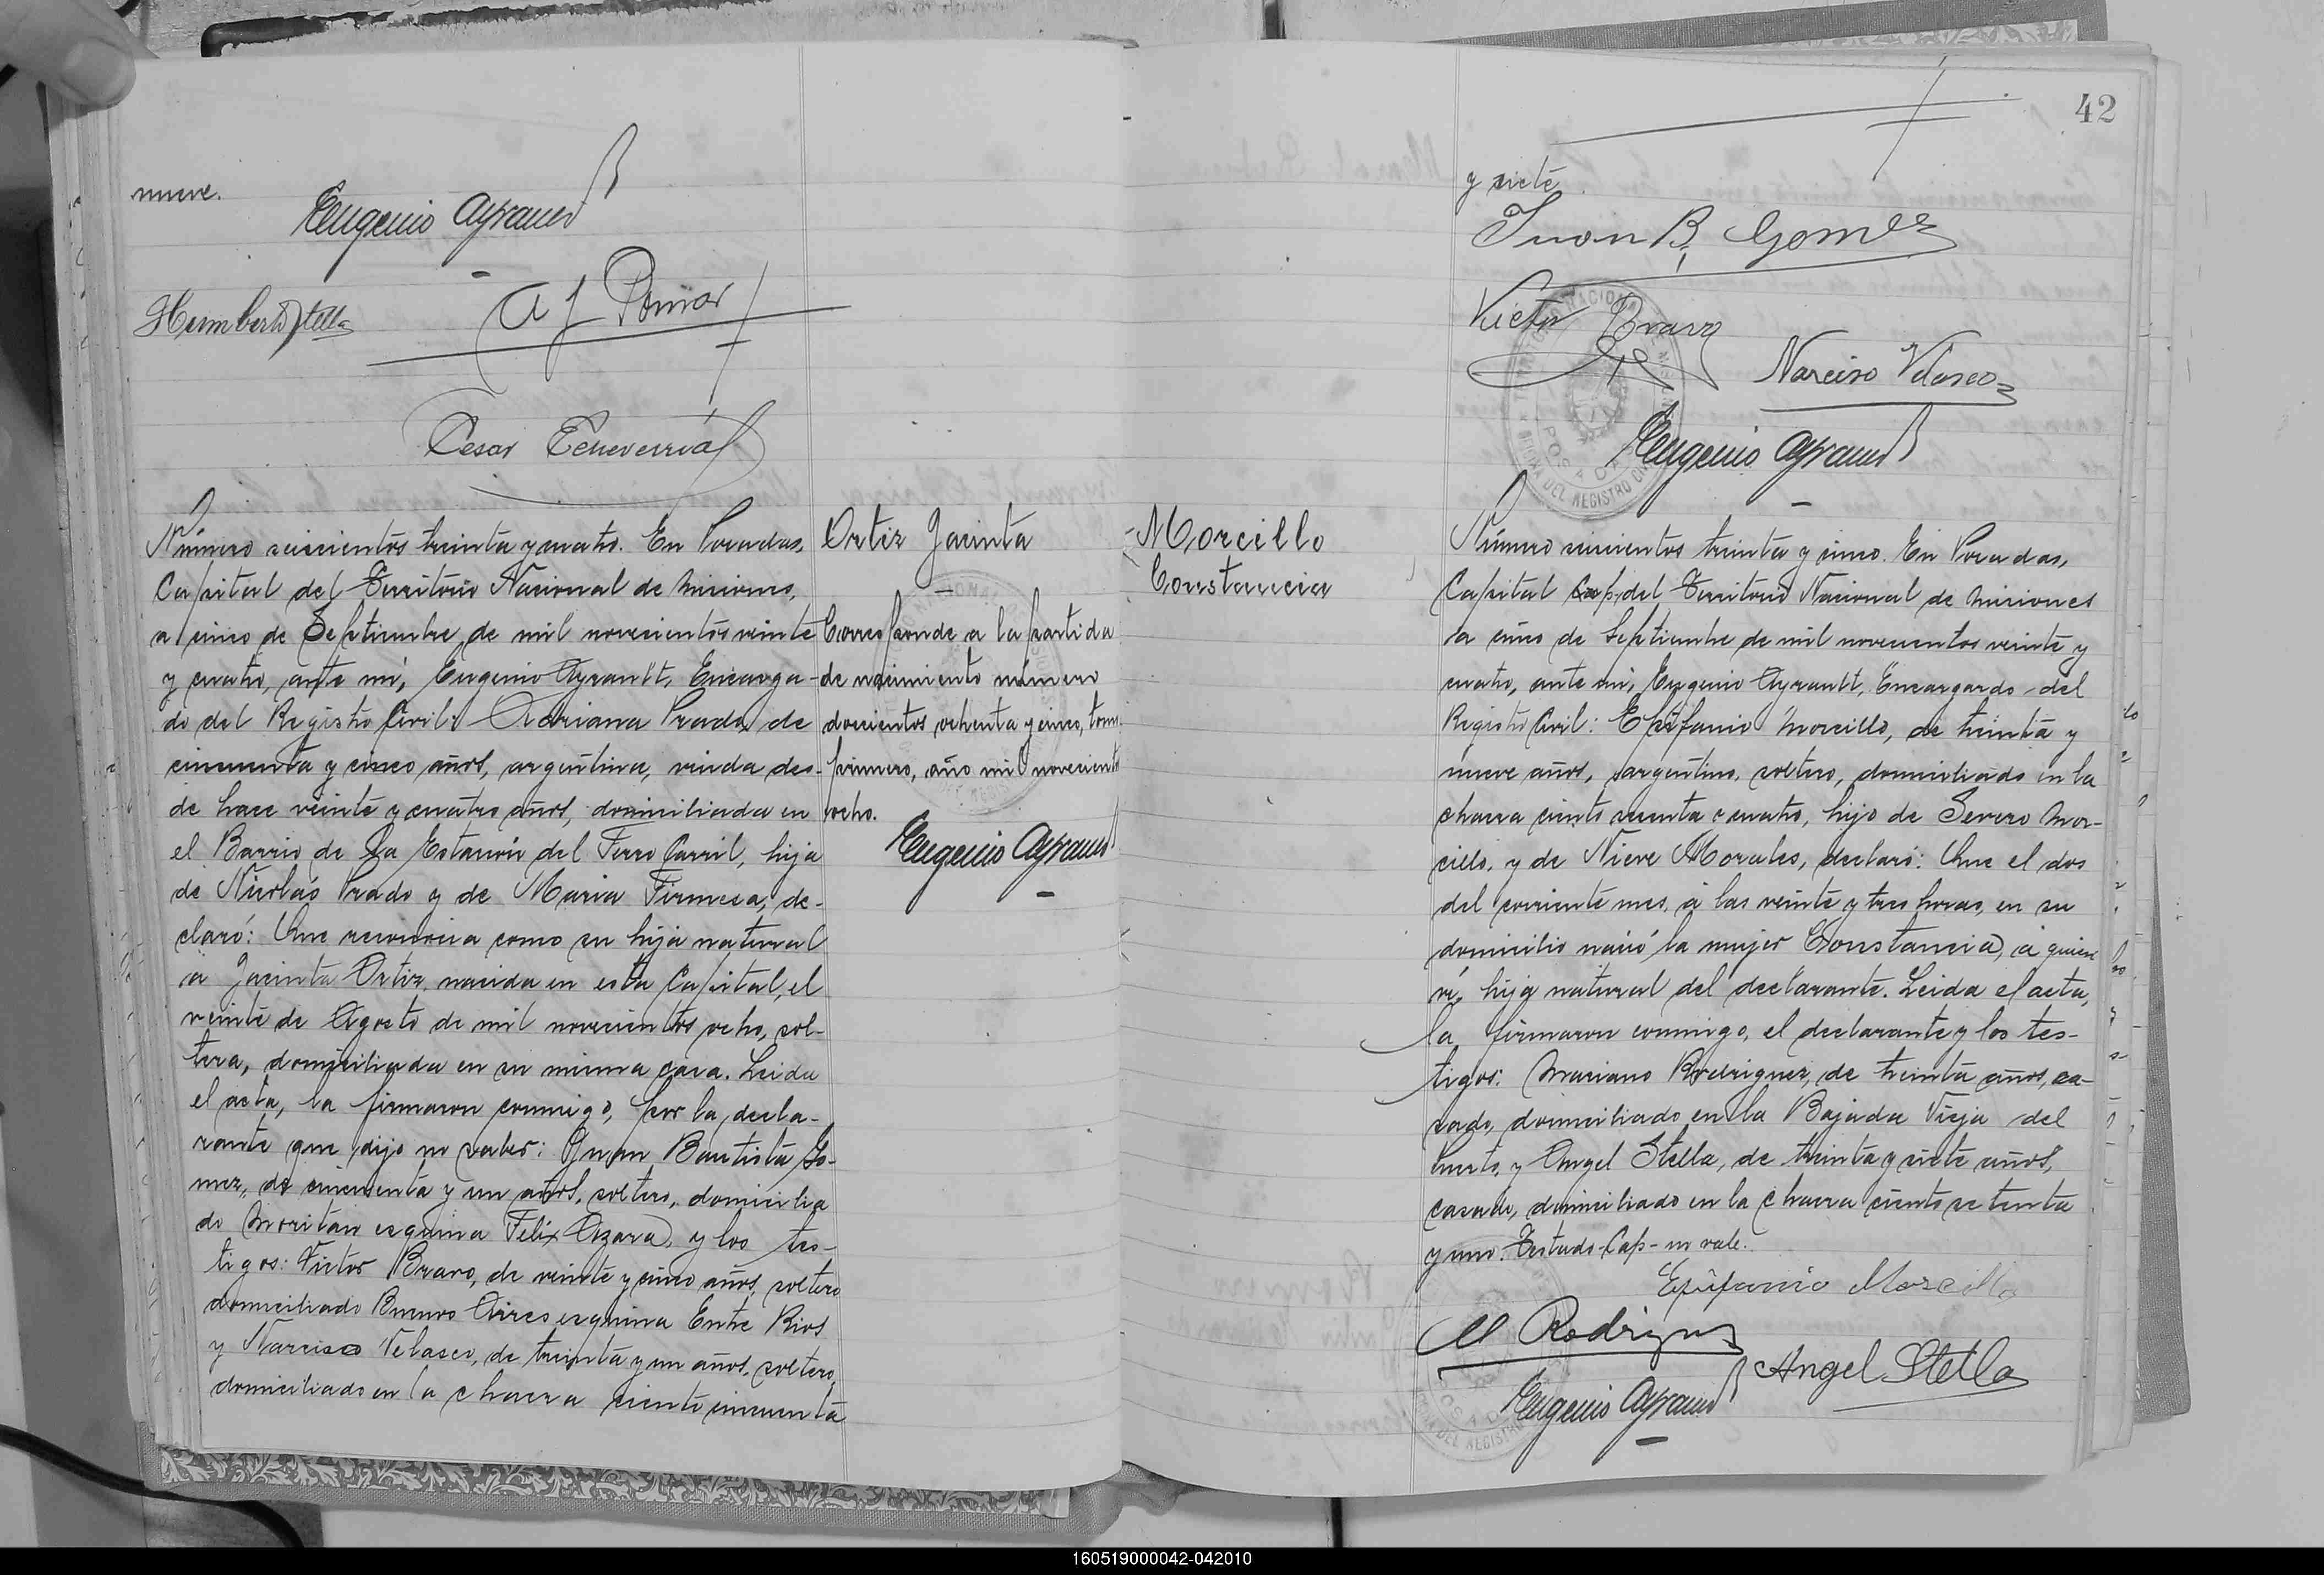 nueve.
Eugenio Ayrault
Humberto Stella
A J Pomar
Cesar Echeverria
Ortiz Jacinta
Corresponde a la partida
de nacimiento número
doscientos ochenta y cinco, tomo
primero, año mil novecientos
ocho.
Eugenio Ayrault
Número seiscientos treinta y cuatro. En Posadas,
Capital del Territorio Nacional de Misiones,
a cinco de Septiembre de mil novecientos veinte
y cuatro, ante mí, Eugenio Ayrault, Encarga-
do del Registro Civil: Adriana Prado, de
cincuenta y cinco años, argentina, viuda des-
de hace veinte y cuatro años, domiciliada en
el Barrio de la Estación del Ferro Carril, hija
de Nicolás Prado y de Maria, de-
claró: Que reconocia como su hija natural
a Jacinta Ortiz, nacida en esta Capital, el
veinte de Agosto de mil novecientos ocho, sol-
tera, domiciliada en su misma casa. Leida
el acta, la firmaron conmigo, por la decla-
rante que dijo no saber: Juan Bautista Go-
mez, de cincuenta y un años, soltero, domicilia
do Moritán esquina Felix Azara, y los tes-
tigos: Victor Bravo, de veinte y cinco años, soltero
domiciliado Buenos Aires esquina Entre Rios
y Narciso Velasco, de treinta y un años, soltero,
domiciliado en la chacra ciento cincuenta
42
y siete.
Juan B. Gomez
Victor Bravo
Narciso Velasco
Eugenio Ayrault
POSADAS
DEL REGISTRO CIVIL
Morcillo
Constancia
Número seiscientos treinta y cinco. En Posadas,
Capital Cap. del Territorio Nacional de Misiones
a cinco de Septiembre de mil novecientos veinte y
cuatro, ante mi, Eugenio Ayrault, Encargardo del
Registro Civil: Epifanio Morcillo, de treinta y
nueve años, argentino, soltero, domiciliado en la
chacra ciento cuatro, hijo de Severo Mor-
cillo, y de Nieve Morales, declaró: Que el dos
del corriente mes, á las veinte y tres horas, en su
domicilio nació la mujer Constancia, á quien
ví, hija natural del declarante. Leida el acta,
la firmaron conmigo, el declarante y los tes-
tigos: Mariano Rodriguez, de treinta años, ca-
sado, domiciliado en la Bajada Vieja del
Puerto, y Angel Stella, de treinta y siete años,
casado, domiciliado en la chacra ciento setenta
y uno. Testado-Cap-no vale.
Epifanio Morcillo
M Rodriguez
Angel Stella
Eugenio Ayrault
160519000042-042010